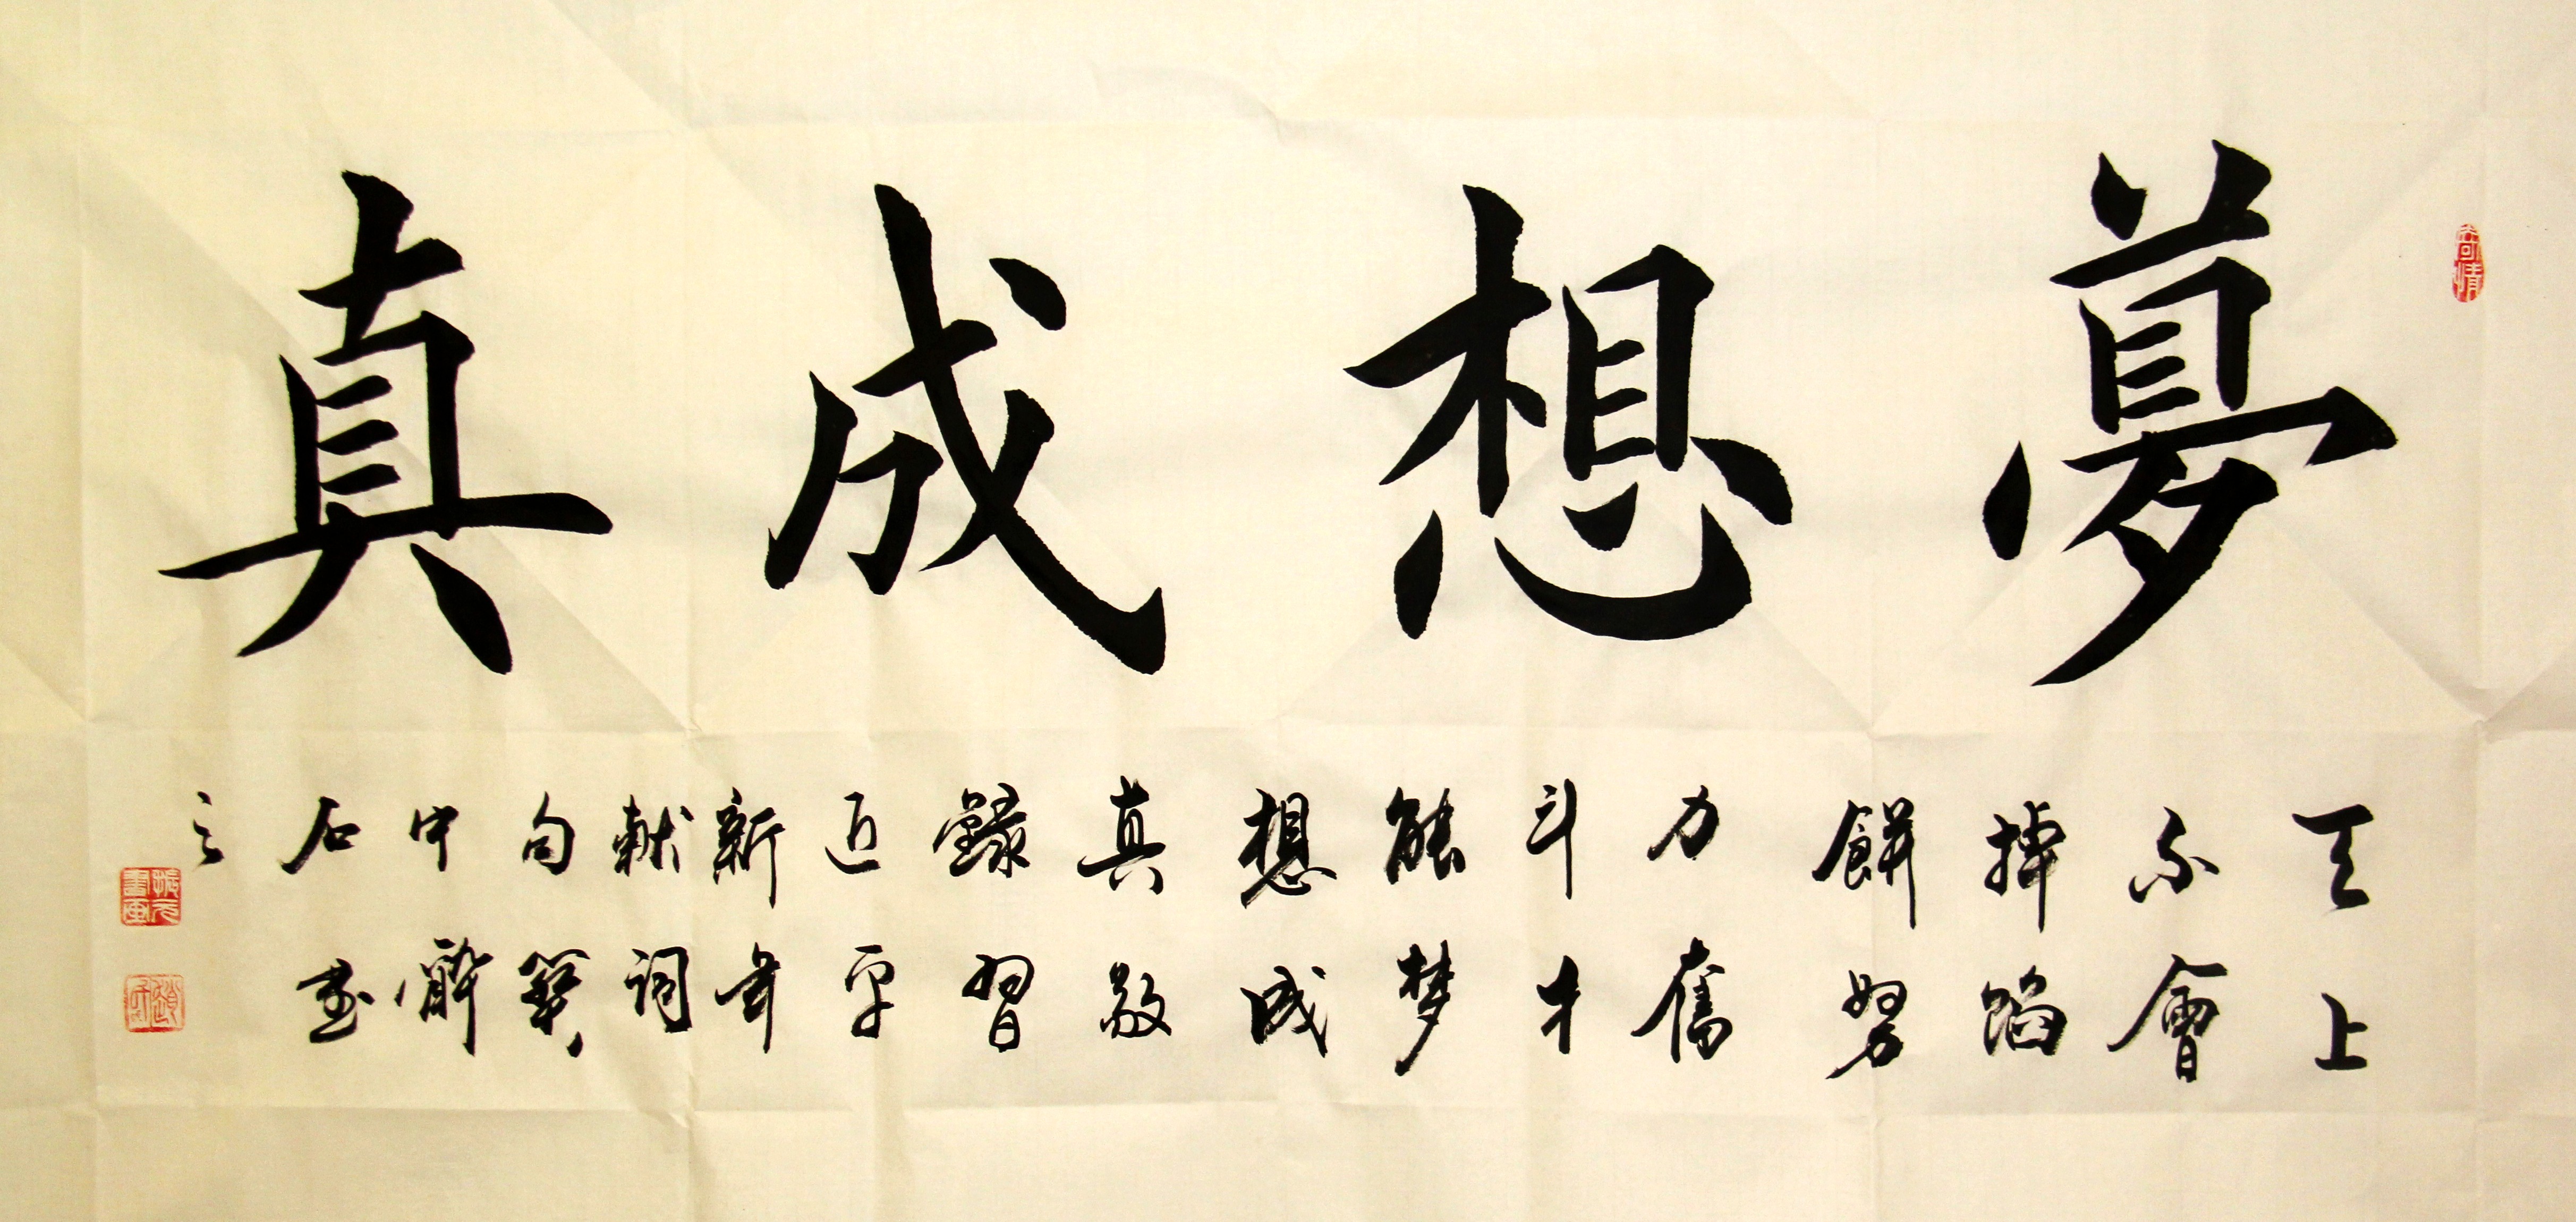 夢想成真
天上
不會
掉餡
餅努
力奮
斗才
能梦
想成
真敬
錄習
近平
新年
献詞
句冀
中醉
石書
之